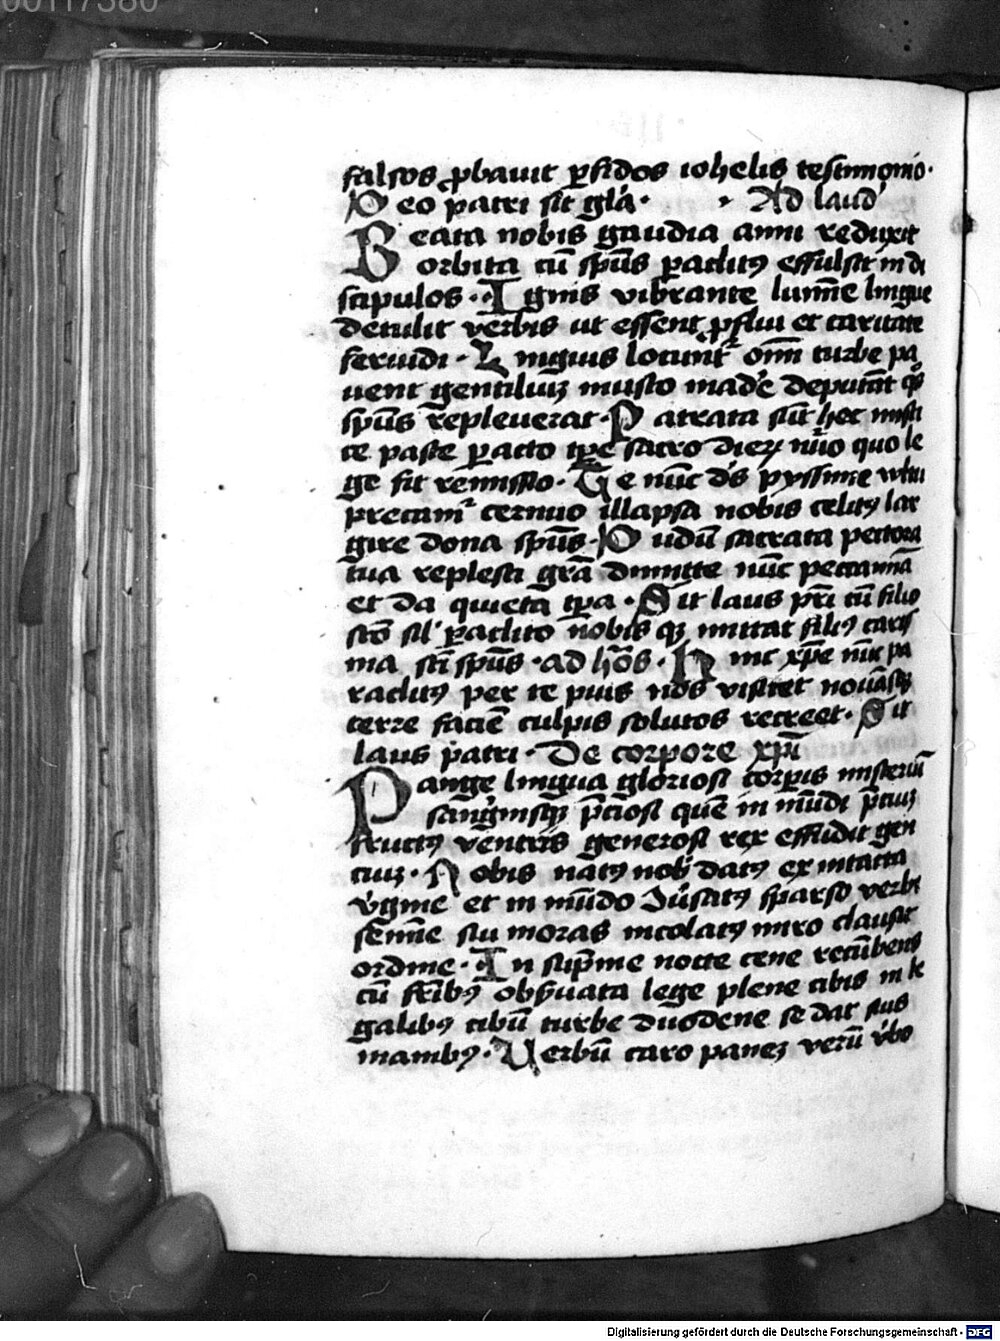 00117380
falsos ꝓbauit ꝑfidos iohelis testimonio·
Deo patri sit glā· · Ad laud
Beata nobis gaudia anni reduxit
orbita cū spūs ꝑaclitꝰ effulsit in di
scipulos · Ignis vibrante lumīe lingue
detulit verbis ut essent ꝓflui et caritate
feruidi · Linguis locunt᷑ oīm turbe pa
uent gentiliuꝫ musto made deputāt qͦs
spūs repleuerat · Patrata sūt hec misti
ce pasce ꝑacto tꝑe sacro dierꝫ nūo quo le
ge fit remissio · Te nūc ds pyssime vltu
precam᷑ cernuo illapsa nobis celitꝰ lar
gire dona spūs · Dudū sacrata pectora
tua replesti grā dimitte nūc peccamīa
et da quieta tꝑa · Sit laus pr̄i cū filio
scō sil' ꝑaclito nobis qꝫ mittat filiꝰ caris
ma sc̄i spūs · ad hōs · Hinc xp̄e nūc pa
raclitꝰ per te pius nos visitet nouāsqꝫ
terre faciē culpis solutos recreet · Sit
laus patri · De corpore xp̄i
Pange lingua gloriosi corꝑis misteriū
sanguinisqꝫ p̄ciosi quē in mūdi p̄ciuꝫ
fructꝰ ventris generosi rex effudit gen
ciuꝫ · Nobis natꝰ nob̄ datꝰ ex intacta
v̄gine et in mūdo ꝯūsatꝰ sparso verbi
semīe sui moras incolatꝰ miro clausit
ordine · In sup̄me nocte cene recūbens
cū fr̄ibꝰ obs̄uata lege plene cibis in le
galibꝰ cibū turbe duodene se dat suis
manibꝰ · Verbū caro paneꝫ verū v̄bo
Digitalisierung gefördert durch die Deutsche Forschungsgemeinschaft - DFG